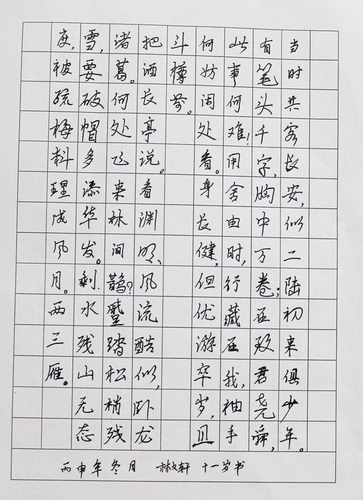 当时共客长安,似二陆初来俱少年。
有笔头千字,胸中万卷;在致君尧舜,
此事何难!用舍由时,行藏在我,袖手
何妨闲处看。身长健,但优游卒岁,且
斗樽前。
把酒长亭说。看渊明、风流酷似,卧龙
渚葛。何处飞来林间鹊?蹙踏松梢残
雪,要破帽多添华发。剩水残山无态
度,被疏梅料理成风月。两三雁。
丙申年冬月 轩 十一岁书